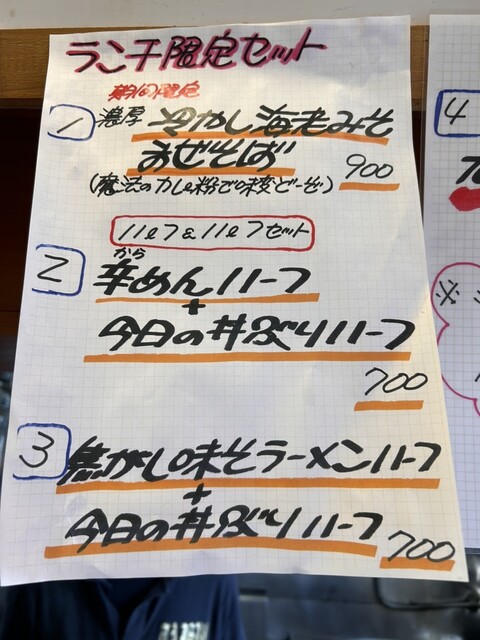 ランチ限定セット
期間限定
1 濃厚 冷やし海老みそ
まぜそば
(魔法のカレー粉で味変どーぞ) 900
ハーフ&ハーフセット
から
2 辛めんハーフ
+
今日の丼ぶりハーフ
700
3 焦がし味そラーメンハーフ
+
今日の丼ぶりハーフ 700
4
※